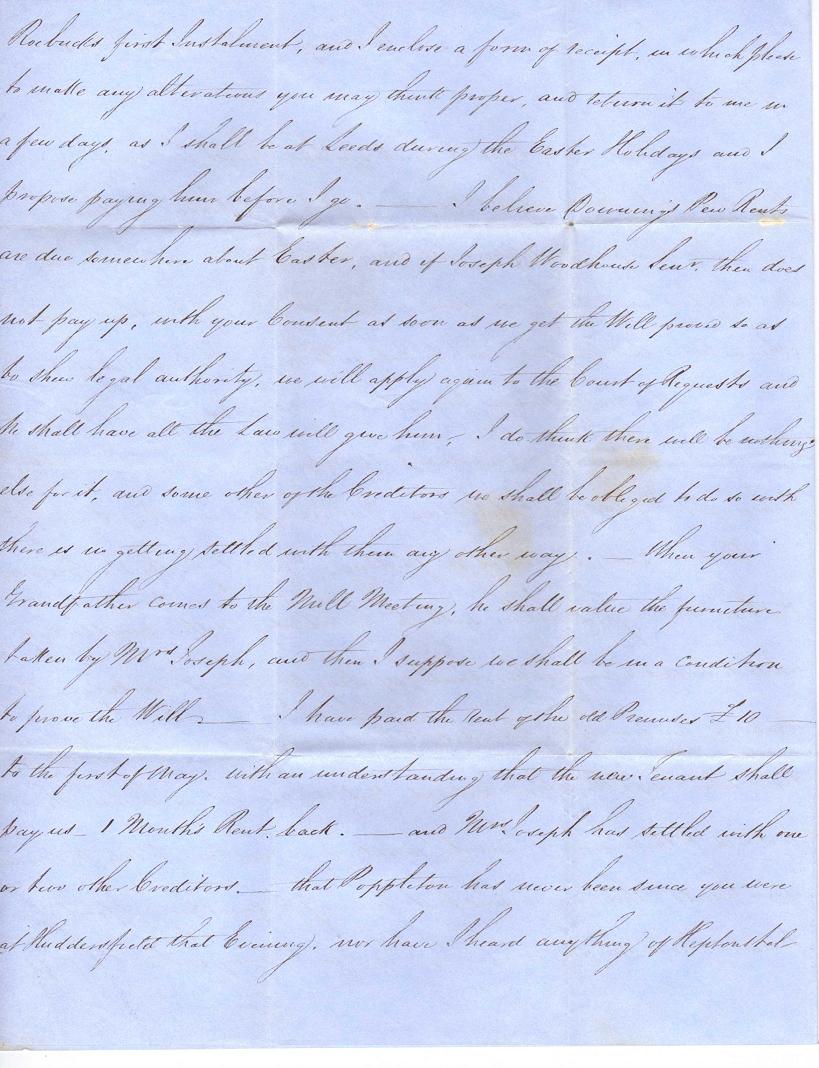 Roebucks first Instalment, and I enclose a form of receipt, in which please
to make any alterations you may think proper, and return it to me in
a few days, as I shall be at Leeds during the Easter Holidays and I
propose paying him before I go. — I believe Downing's Pew Rents
are due somewhere about Easter, and if Joseph Woodhouse Senr. then does
not pay up, with your Consent as soon as we get the Will proved so as
to shew legal authority, we will apply again to the Court of Requests and
he shall have all the Law will give him, I do think there will be nothing
else for it, and some other of the Creditors we shall be obliged to do so with
there is no getting settled with them any other way. — When your
Grandfather comes to the Mill Meeting, he shall value the furniture
taken by Mrs Joseph, and then I suppose we shall be in a condition
to prove the Will — I have paid the Rent of the old Premises £10 —
to the first of May. with an understanding that the new Tenant shall
pay us 1 Month's Rent back. — and Mrs Joseph has settled with one
or two other Creditors. — that Poppleton has never been since you were
at Huddersfield that Evening. nor have I heard anything of Heptonstal